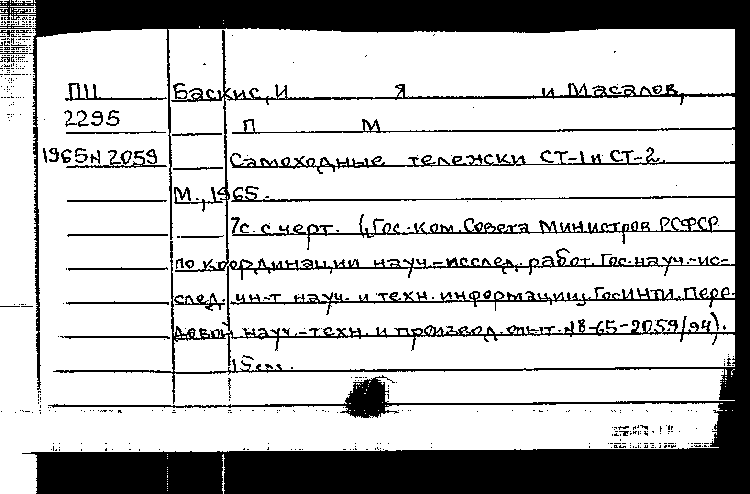 ПII Баскис, И Я и Масалов,
2295 П М
1965 N 2059 Самоходные тележки СТ-1 и СТ-2.
М., 1965.
7с. с черт. (Гос. ком. Совета Министров РСФСР
по координации науч.-исслед. работ. Гос. науч.-ис-
след. ин-т науч. и техн. информации. ГосИНТИ. Пере-
довой науч.-техн. и производ. опыт. №8-65-2059/94).
15 см.